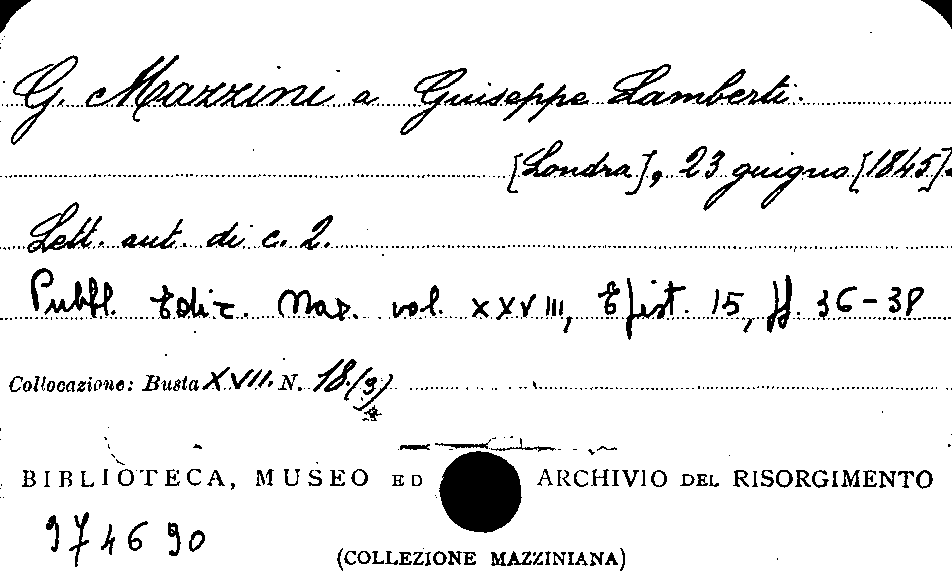 G. Mazzini a Giuseppe Lamberti.
[Londra], 23 giugno [1845].
Lett. aut. di c. 2.
Pubbl. Ediz. Naz. vol. XXVIII, Epist. 15, pp. 36-38
Collocazione: Busta XVII. N. 18.(9)
BIBLIOTECA, MUSEO ED ARCHIVIO DEL RISORGIMENTO
974690
(COLLEZIONE MAZZINIANA)